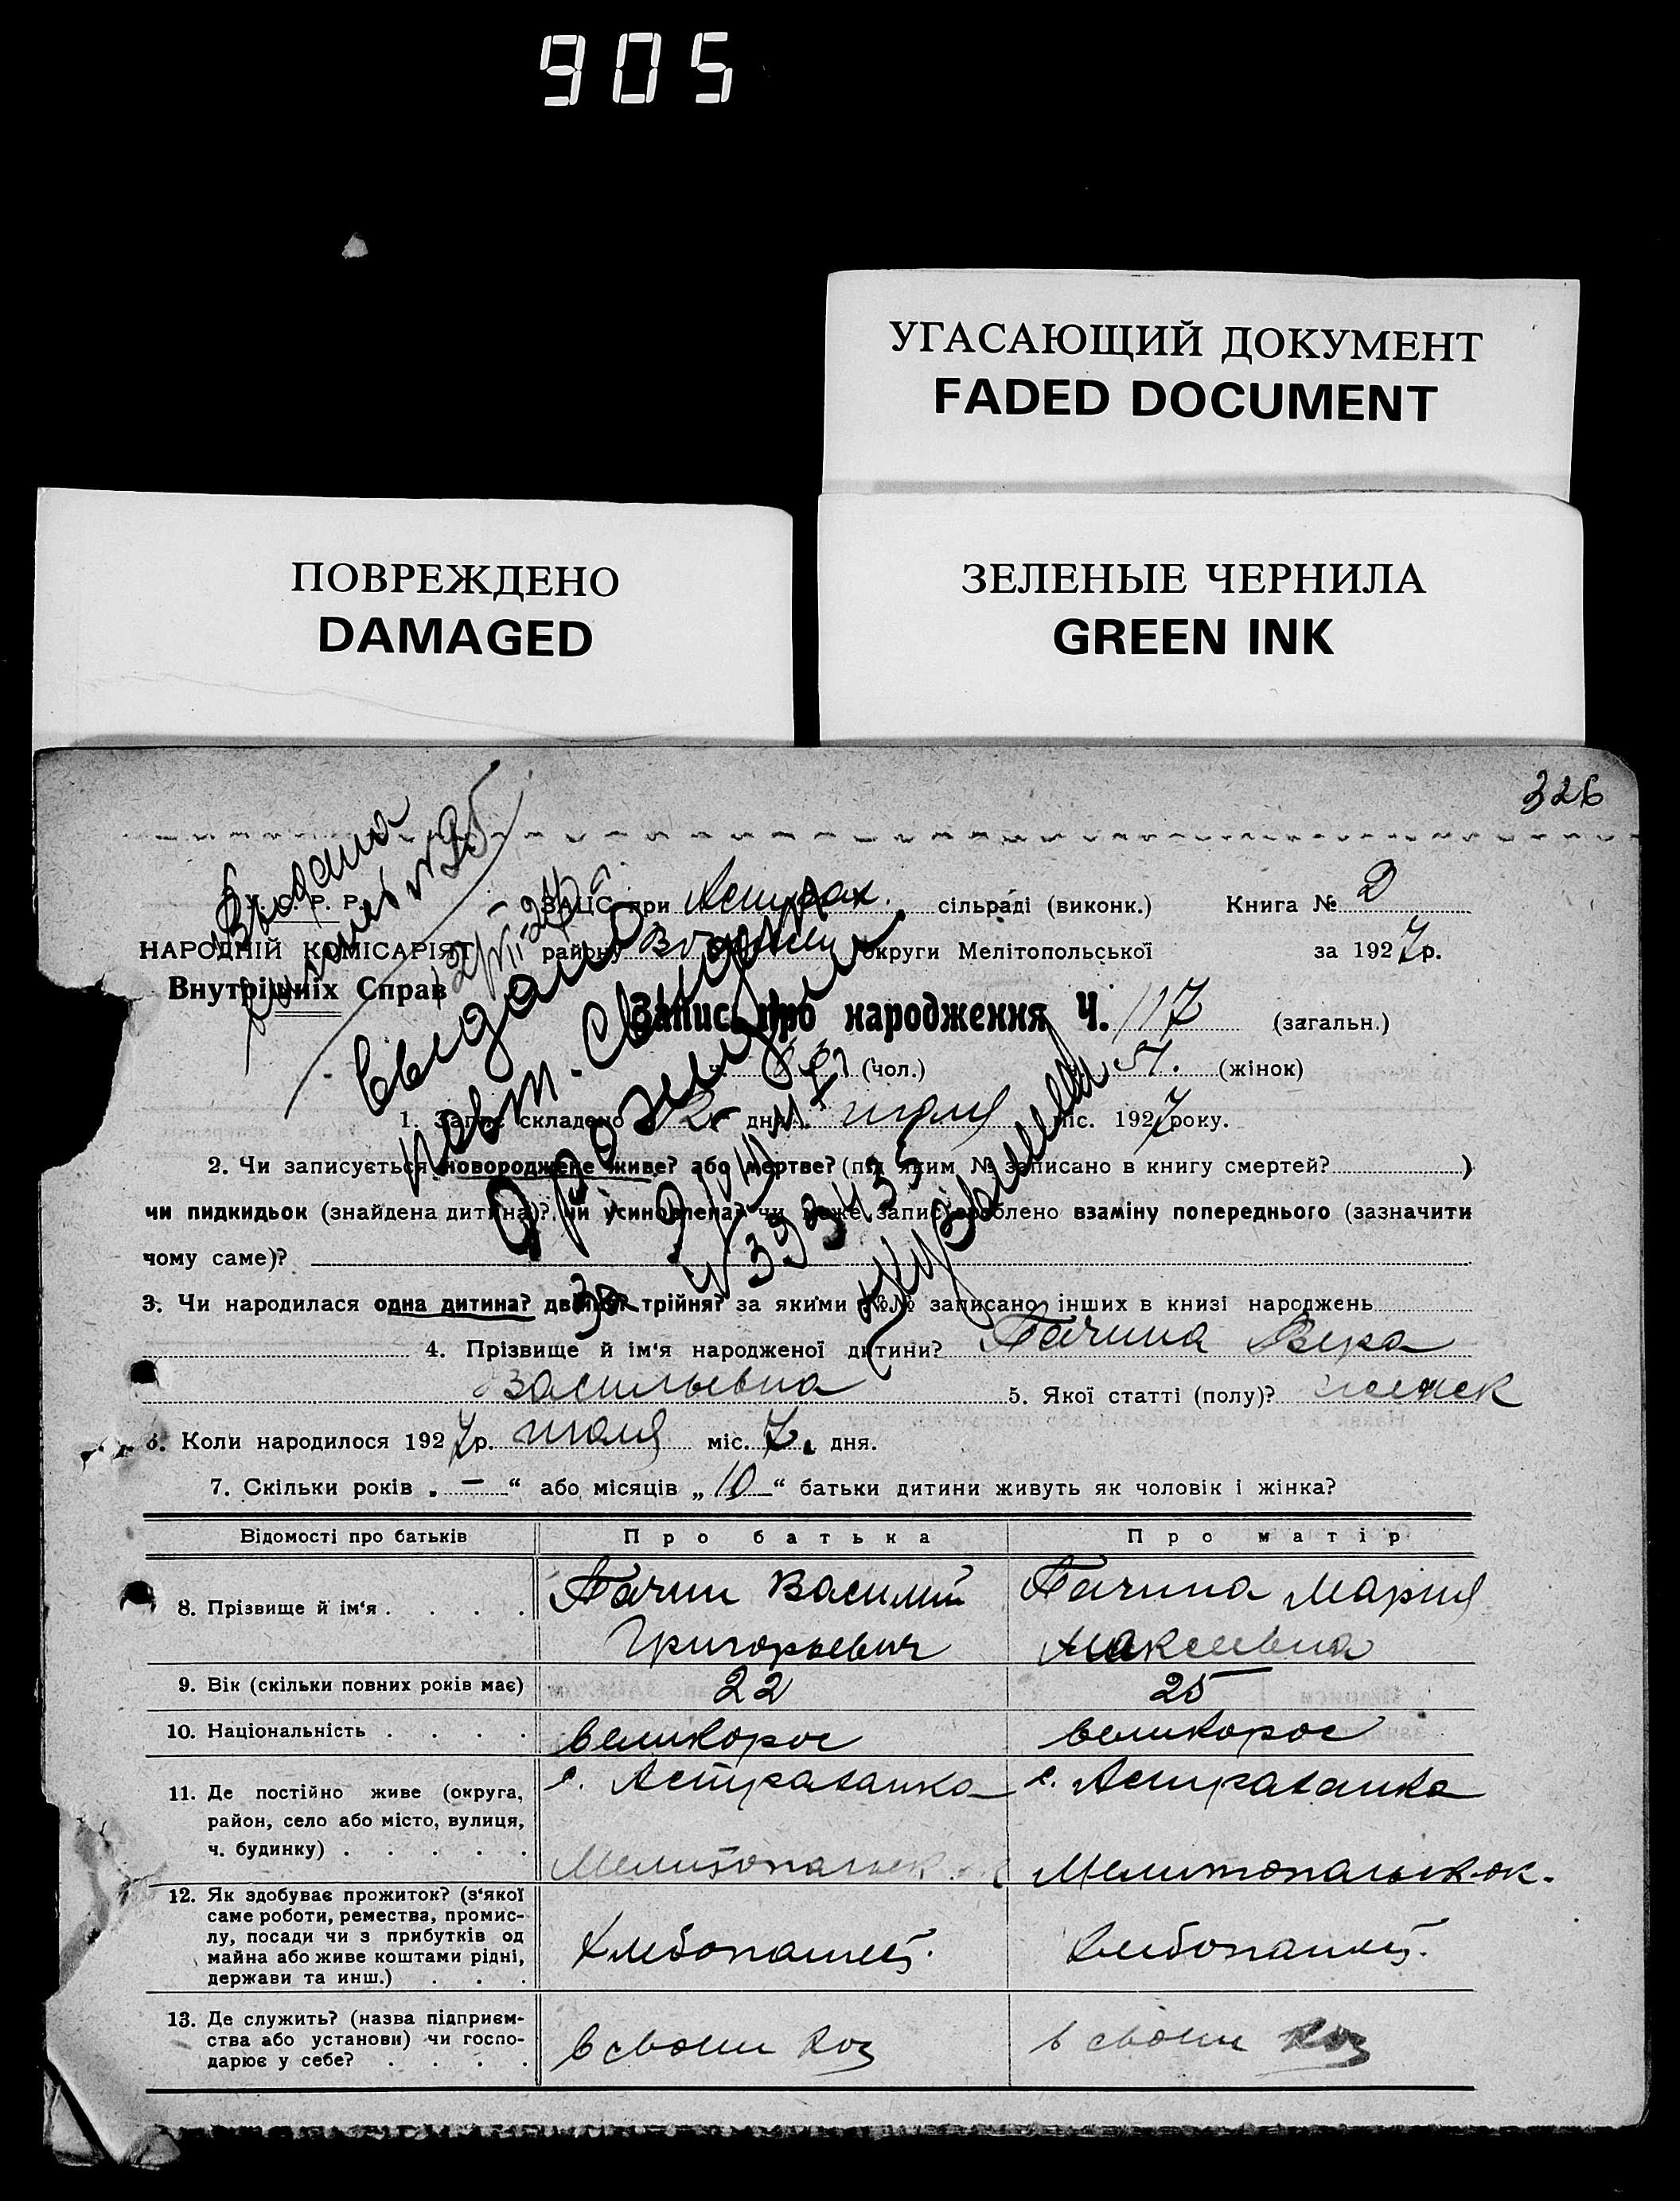 905
УГАСАЮЩИЙ ДОКУМЕНТ
FADED DOCUMENT
ПОВРЕЖДЕНО
DAMAGED
ЗЕЛЕНЫЕ ЧЕРНИЛА
GREEN INK
326
У. С. Р. Р.
НАРОДНІЙ КОМІСАРІЯТ
Внутрішніх Справ
Выдана
выдано
повт. свид.
о рожден
ЗАЦС при Астрах. сільраді (виконк.) Книга № 2
району округи Мелітопольської за 1927 р.
Запис про народження Ч. 117 (загальн.)
ч. (чол.) 51. (жінок)
1. Запис складено 12 дня июля міс. 1927 року.
2. Чи записується новороджене живе? або мертве? (під яким № записано в книгу смертей? )
чи пидкидьок (знайдена дитина)?, чи усиновлена? чи може запис зроблено взаміну попереднього (зазначити
чому саме)?
3. Чи народилася одна дитина? двійня? трійня? за якими №№ записано інших в книзі народжень
4. Прізвище й ім'я народженої дитини? Пачина Вера
Васильевна 5. Якої статті (полу)? женск
6. Коли народилося 1927 р. июля міс. 7 дня.
7. Скільки років „ — “ або місяців „ 10 “ батьки дитини живуть як чоловік і жінка?
Відомості про батьків Про батька Про матір
8. Прізвище й ім'я . . . . Пачин Василий Пачина Мария
Григорьевич
9. Вік (скільки повних років має) 22 25
10. Національність . . . . великорос великорос
11. Де постійно живе (округа, с. Астраханка с. Астраханка
район, село або місто, вулиця,
ч. будинку) . . . . . Мелитопольск. ок Мелитопольск ок.
12. Як здобуває прожиток? (з'якої
саме роботи, ремества, промис-
лу, посади чи з прибутків од
майна або живе коштами рідні, хлебопашец. хлебопашец.
держави та инш.) . . .
13. Де служить? (назва підприєм-
ства або установи) чи госпо-
дарює у себе? . . . . в своем хоз в своем хоз